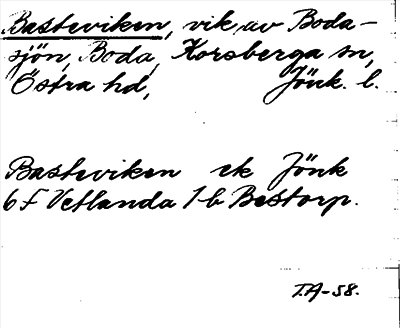 Basteviken, vik, av Boda-
sjön, Boda, Korsberga sn,
Östra hd, Jönk. l.
Basteviken ek Jönk
6 F Vetlanda 1 b Bestorp.
T.A-58.